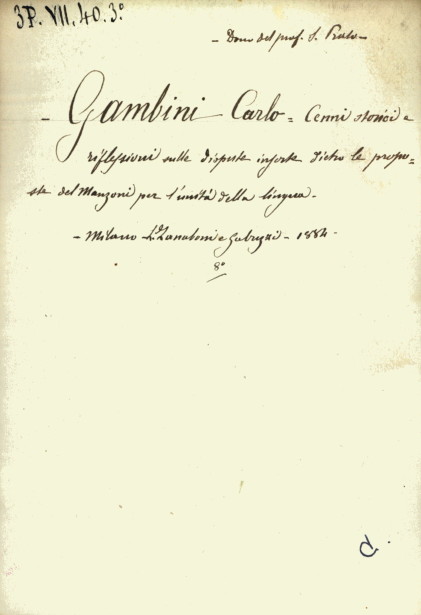 3P. VII. 40. 3.°
- Dono del prof. S. Prato -
- Gambini Carlo = Cenni storici e
riflessioni sulle dispute insorte dietro le propo=
ste del Manzoni per l'unità della lingua -
- Milano Zanaboni e Gabuzzi - 1884 -
8°